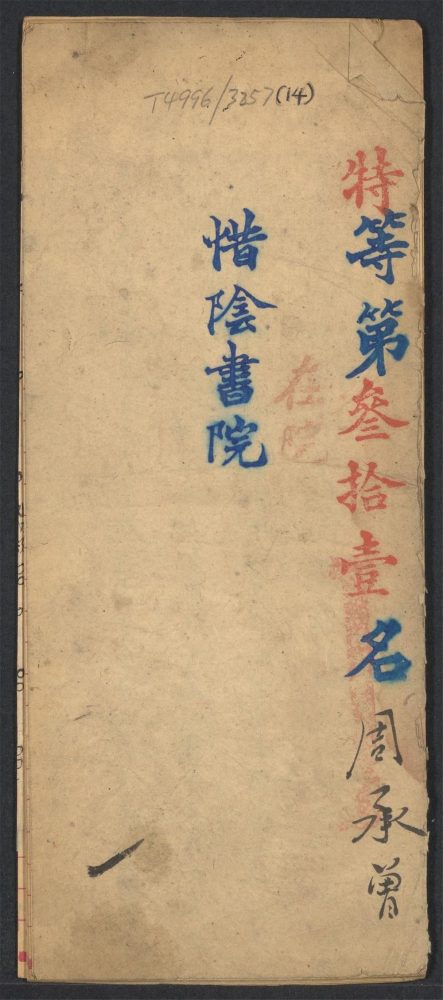 T4996/3257(14)
特等第叄拾壹名 周承曾
在院
惜陰書院
一